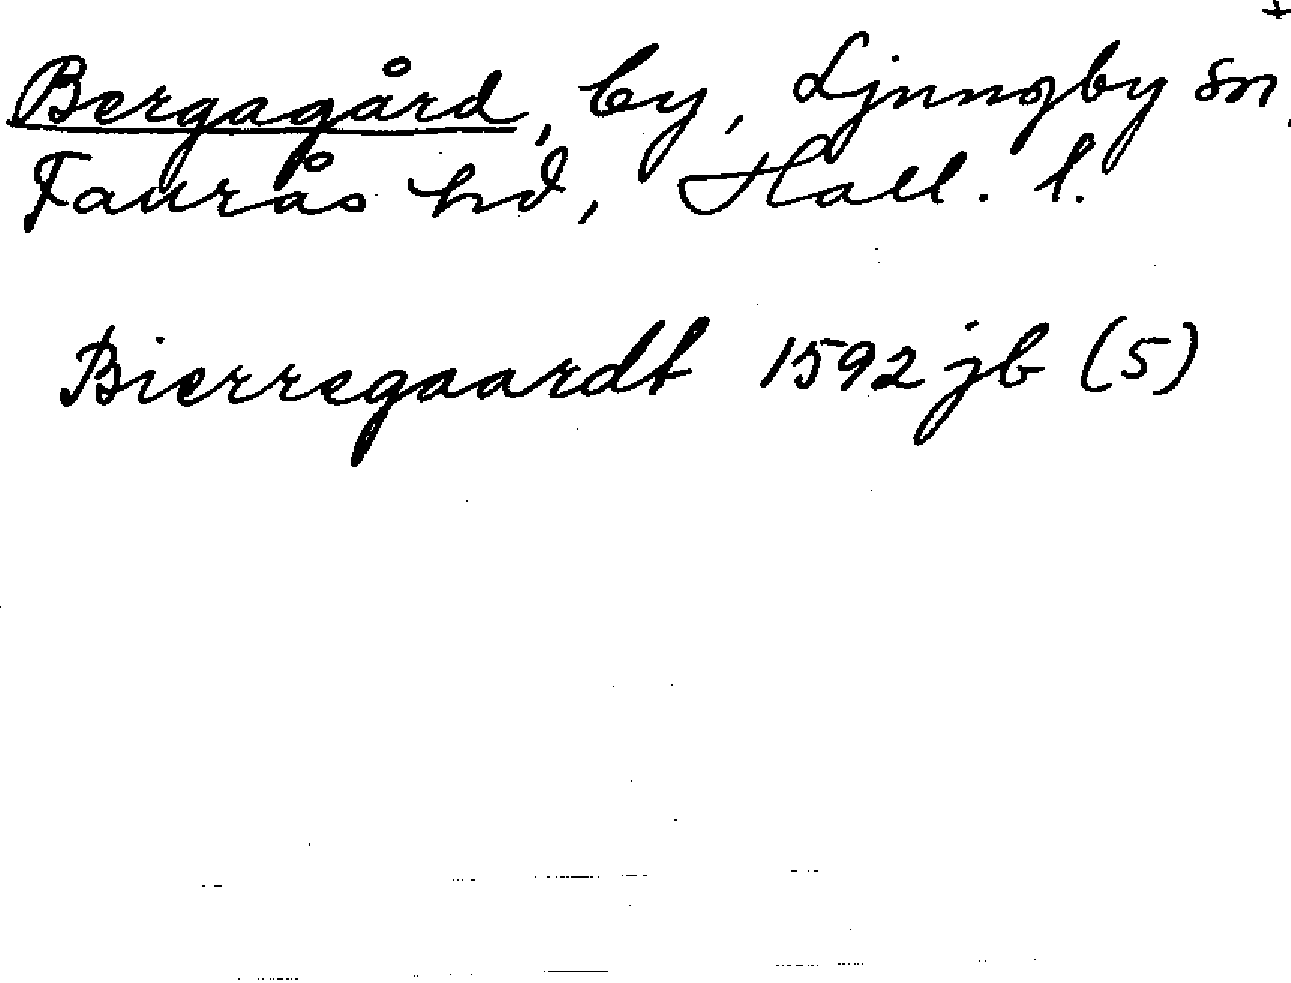 +
Bergagård, by, Ljungby sn,
Faurås hd, Hall. l.
Bierregaardt 1592 jb (5)